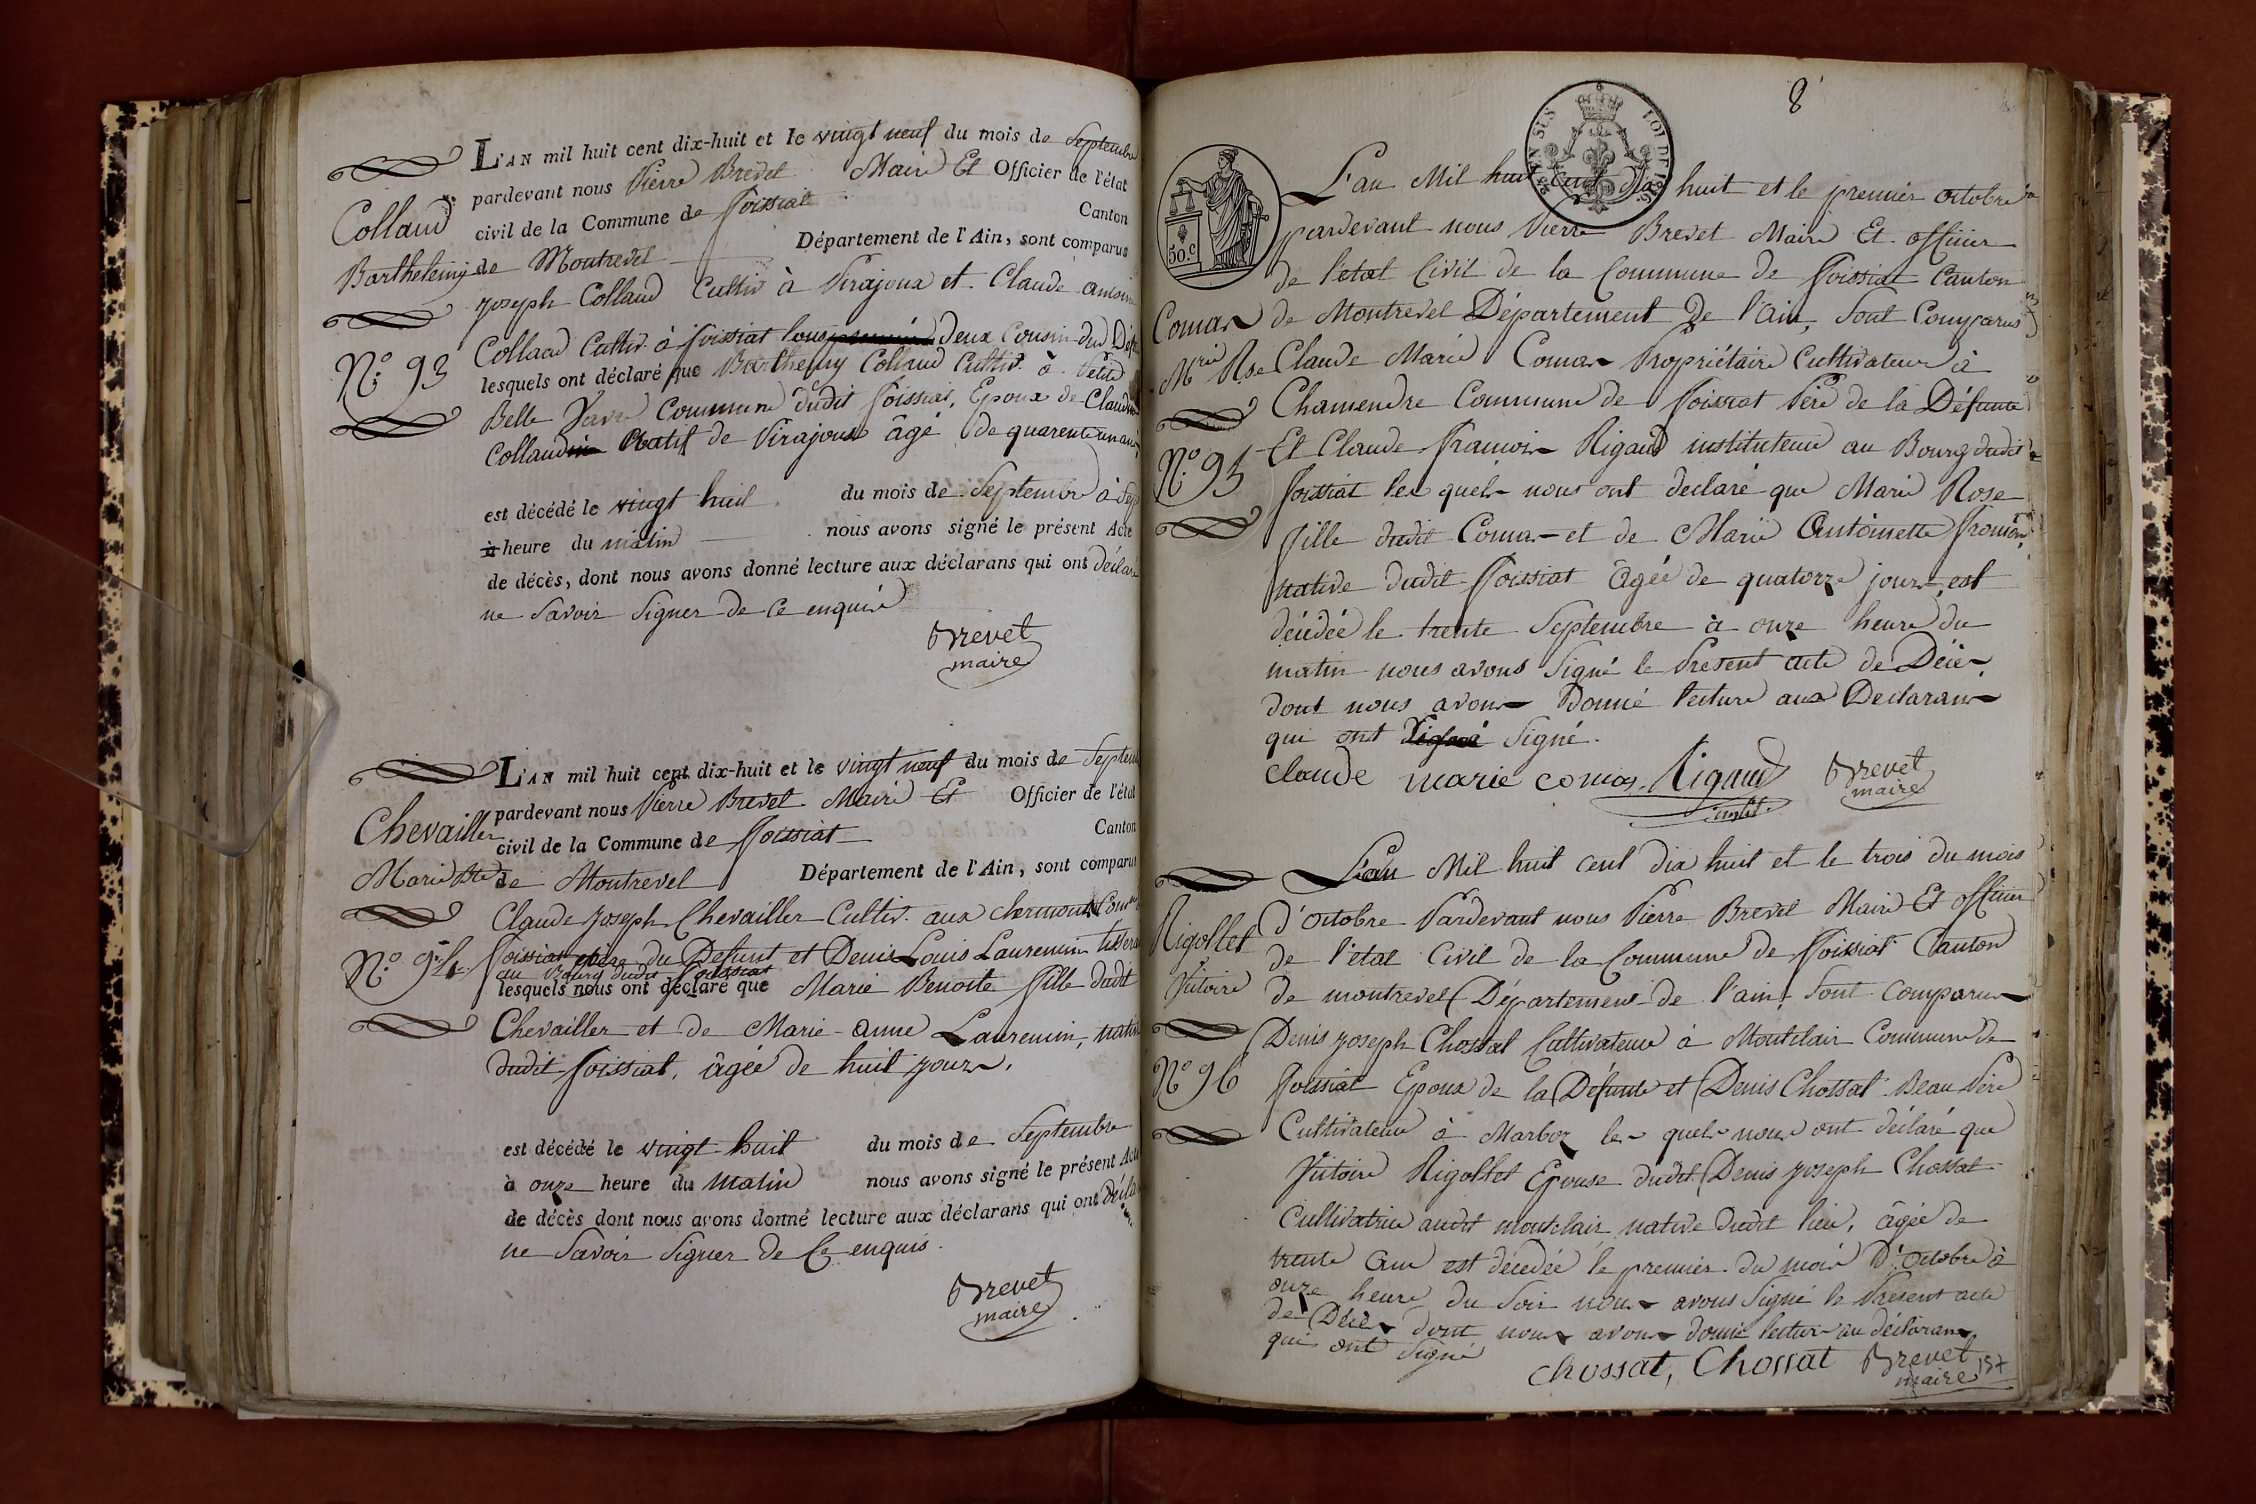 L'AN mil huit cent dix-huit et le vingt neuf du mois de Septembre
pardevant nous Pierre Brevet Maire Et Officier de l'état
civil de la Commune de foissiat Canton
de Montrevel Département de l'Ain, sont comparus
Colland
Barthelemy
N.º 93
joseph Colland Cultiv à Virajoux et Claude antoine
Colland Cultiv. à foissiat tous deux Cousin du Déf
lesquels ont déclaré que Barthelemy Colland Cultiv. à Petite
Belle Commune dudit foissiat, Epoux de Claudine
Colland Natif de Virajoux âgé de quarente un ans
est décédé le vingt huit du mois de Septembre à Sep
heure du matin nous avons signé le présent Acte
de décès, dont nous avons donné lecture aux déclarans qui ont déclaré
ne Savoir Signer de Ce enquis
Brevet
maire
L'AN mil huit cent dix-huit et le vingt neuf du mois de Septem
pardevant nous Pierre Brevet Maire Et Officier de l'état
civil de la Commune de foissiat Canton
de Montrevel Département de l'Ain, sont comparus
Chevailler
Marie Bte
N.º 94
Claude joseph Chevailler Cultiv. aux chermonts Comune
foissiat père du Defunt et Denis Louis Laurencin tissera
au Bourg dudit foissiat
lesquels nous ont déclaré que Marie Benoite fille dudit
Chevailler et de Marie anne Laurencin, nativ
dudit foissiat, âgée de huit jours.
est décédé le vingt huit du mois de Septembre
à onze heure du Matin nous avons signé le présent Acte
de décès dont nous avons donné lecture aux déclarans qui ont décla
ne Savoir Signer de Ce enquis.
Brevet
maire
8
50.C
LOI DE 1816
L'an Mil huit cent dix huit et le premier octobre
pardevant nous Pierre Brevet Maire Et officier
de l'état Civil de la Commune de foissiat Canton
Comas
Mrie Rse
N.º 95
de Montrevel Département De l'Ain, Sont Comparus
Claude Marie Comas Propriétaire Cultivateur à
Chamendre Commune de foissiat Père de la Défunte
Et Claude françois Rigaud instituteur au Bourg dudit
foissiat les quels nous ont déclaré que Marie Rose
fille dudit Comas et de Marie Antoinette fromon
native dudit foissiat âgée de quatorze jours, est
décédée le trente Septembre à onze heure du
matin nous avons Signé le Présent acte de Décès
dont nous avons Donné lecture aux Declarans
qui ont Signé.
Claude marie comas Rigaud Brevet
instit. maire
L'an Mil huit cent dix huit et le trois du mois
Rigollet
Victoire
N.º 96
d'Octobre Pardevant nous Pierre Brevet Maire Et officier
de l'état Civil de la Commune de foissiat Canton
de montrevel Département de l'ain, Sont Comparus
Denis joseph Chossat Cultivateur à Montclair Commune de
foissiat Epoux de la Défunte et Denis Chossat Beau Père
Cultivateur à Marboz les quels nous ont déclaré que
Victoire Rigollet Epouse dudit Denis joseph Chossat
Cultivatrice audit montclair native dudit lieu, âgée de
trente ans est décedée le premier du mois d'Octobre à
onze heure du Soir nous avons Signé le Présent acte
de Décès dont nous avons donné lecture au déclarans
qui ont Signé
chossat, Chossat Brevet
maire
137